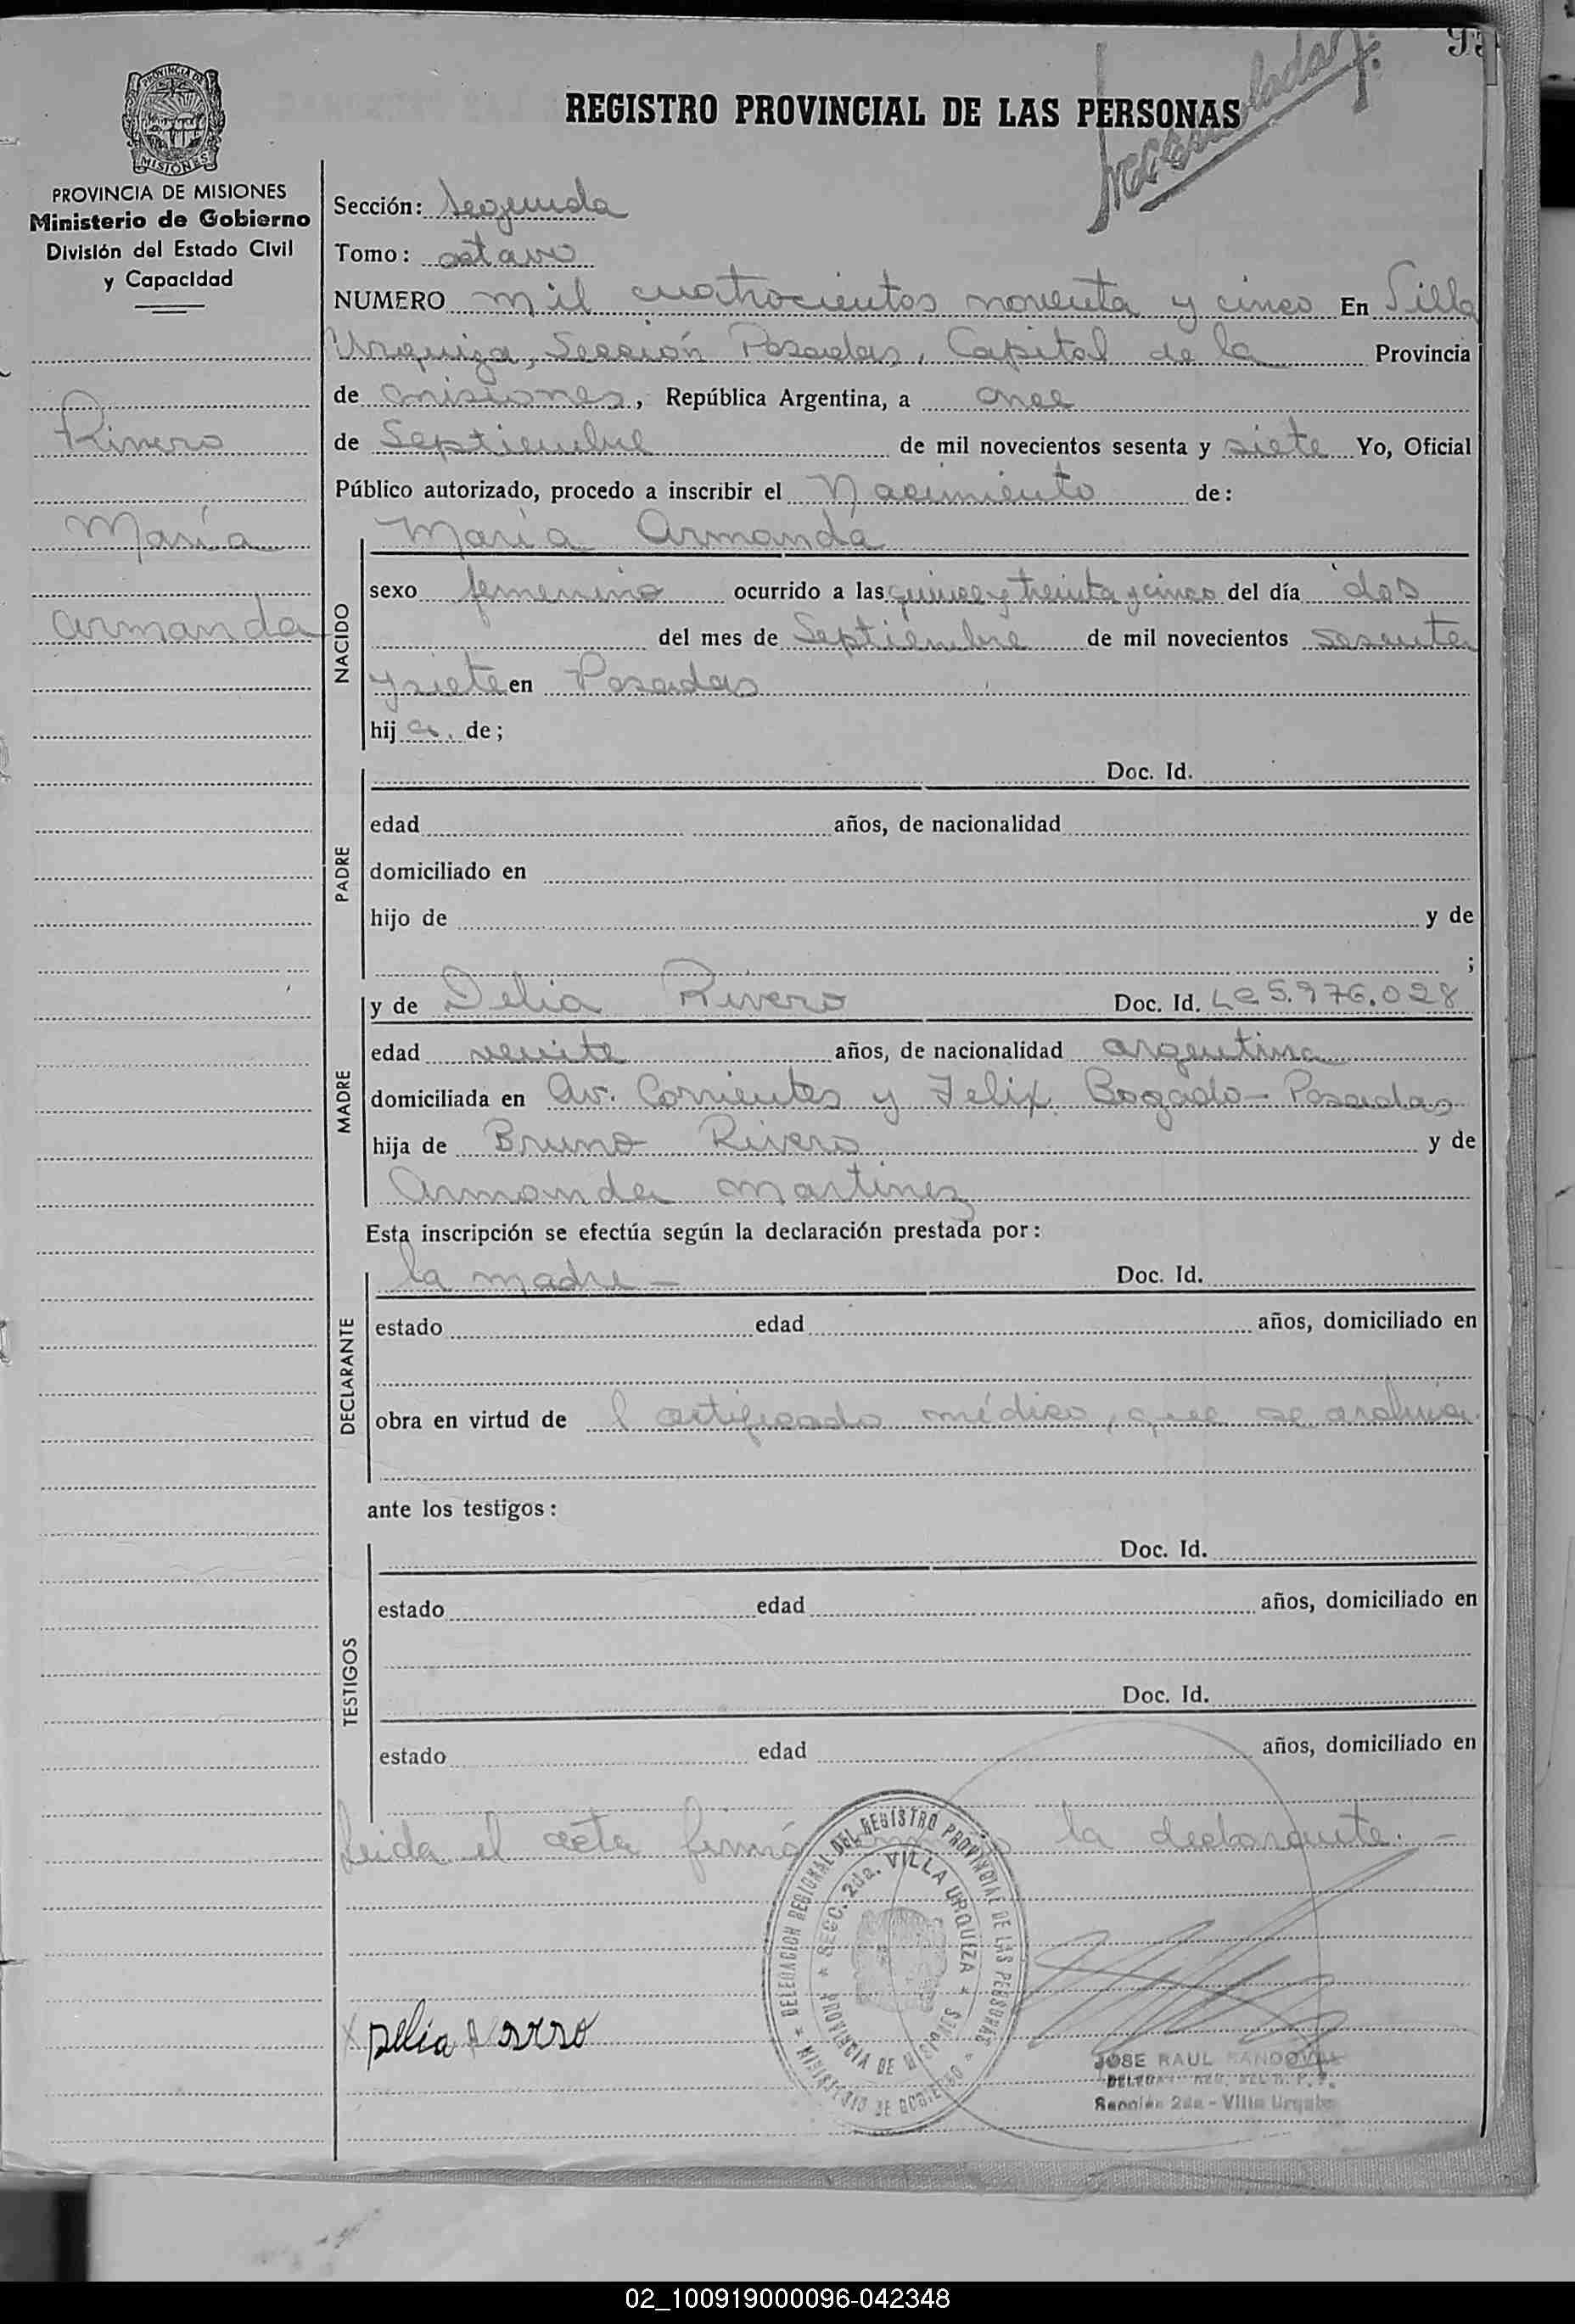 PROVINCIA DE
MISIONES
PROVINCIA DE MISIONES
Ministerio de Gobierno
División del Estado Civil
y Capacidad
Rivero
María
Armanda
REGISTRO PROVINCIAL DE LAS PERSONAS
Sección: Segunda
Tomo: octavo
NUMERO mil cuatrocientos noventa y cinco En Villa
Urquiza, Sección Posadas, Capital de la Provincia
de Misiones, República Argentina, a once
de Septiembre de mil novecientos sesenta y siete Yo, Oficial
Público autorizado, procedo a inscribir el Nacimiento de:
NACIDO
María Armanda
sexo femenino ocurrido a las quince y treinta y cinco del día dos
del mes de Septiembre de mil novecientos sesenta
y siete en Posadas
hij a. de;
PADRE
Doc. Id.
edad años, de nacionalidad
domiciliado en
hijo de y de
;
MADRE
y de Delia Rivero Doc. Id. LC 5.976.028
edad veinte años, de nacionalidad argentina
domiciliada en Av. Corrientes y Felix Bogado - Posadas
hija de Bruno Rivero y de
Armanda Martinez
Esta inscripción se efectúa según la declaración prestada por:
DECLARANTE
la madre - Doc. Id.
estado edad años, domiciliado en
obra en virtud de l certificado médico, que se archiva.
ante los testigos:
TESTIGOS
Doc. Id.
estado edad años, domiciliado en
Doc. Id.
estado edad años, domiciliado en
Leida el acta firmó la declarante. -
DELEGACION REGIONAL DEL REGISTRO PROVINCIAL DE LAS PERSONAS
MINISTERIO DE GOBIERNO
SECC. 2da. VILLA URQUIZA
PROVINCIA DE MISIONES
x Delia Rivero
JOSE RAUL SANDOVAL
Sección 2da - Villa Urquiza
02_100919000096-042348